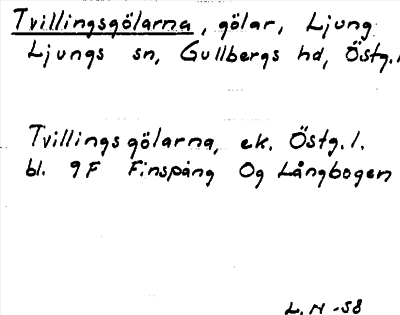 Tvillingsgölarna, gölar, Ljung
Ljungs sn, Gullbergs hd, Östg.l
Tvillingsgölarna, ek. Östg.l.
bl. 9F Finspång Og Långbogen
L.N -58